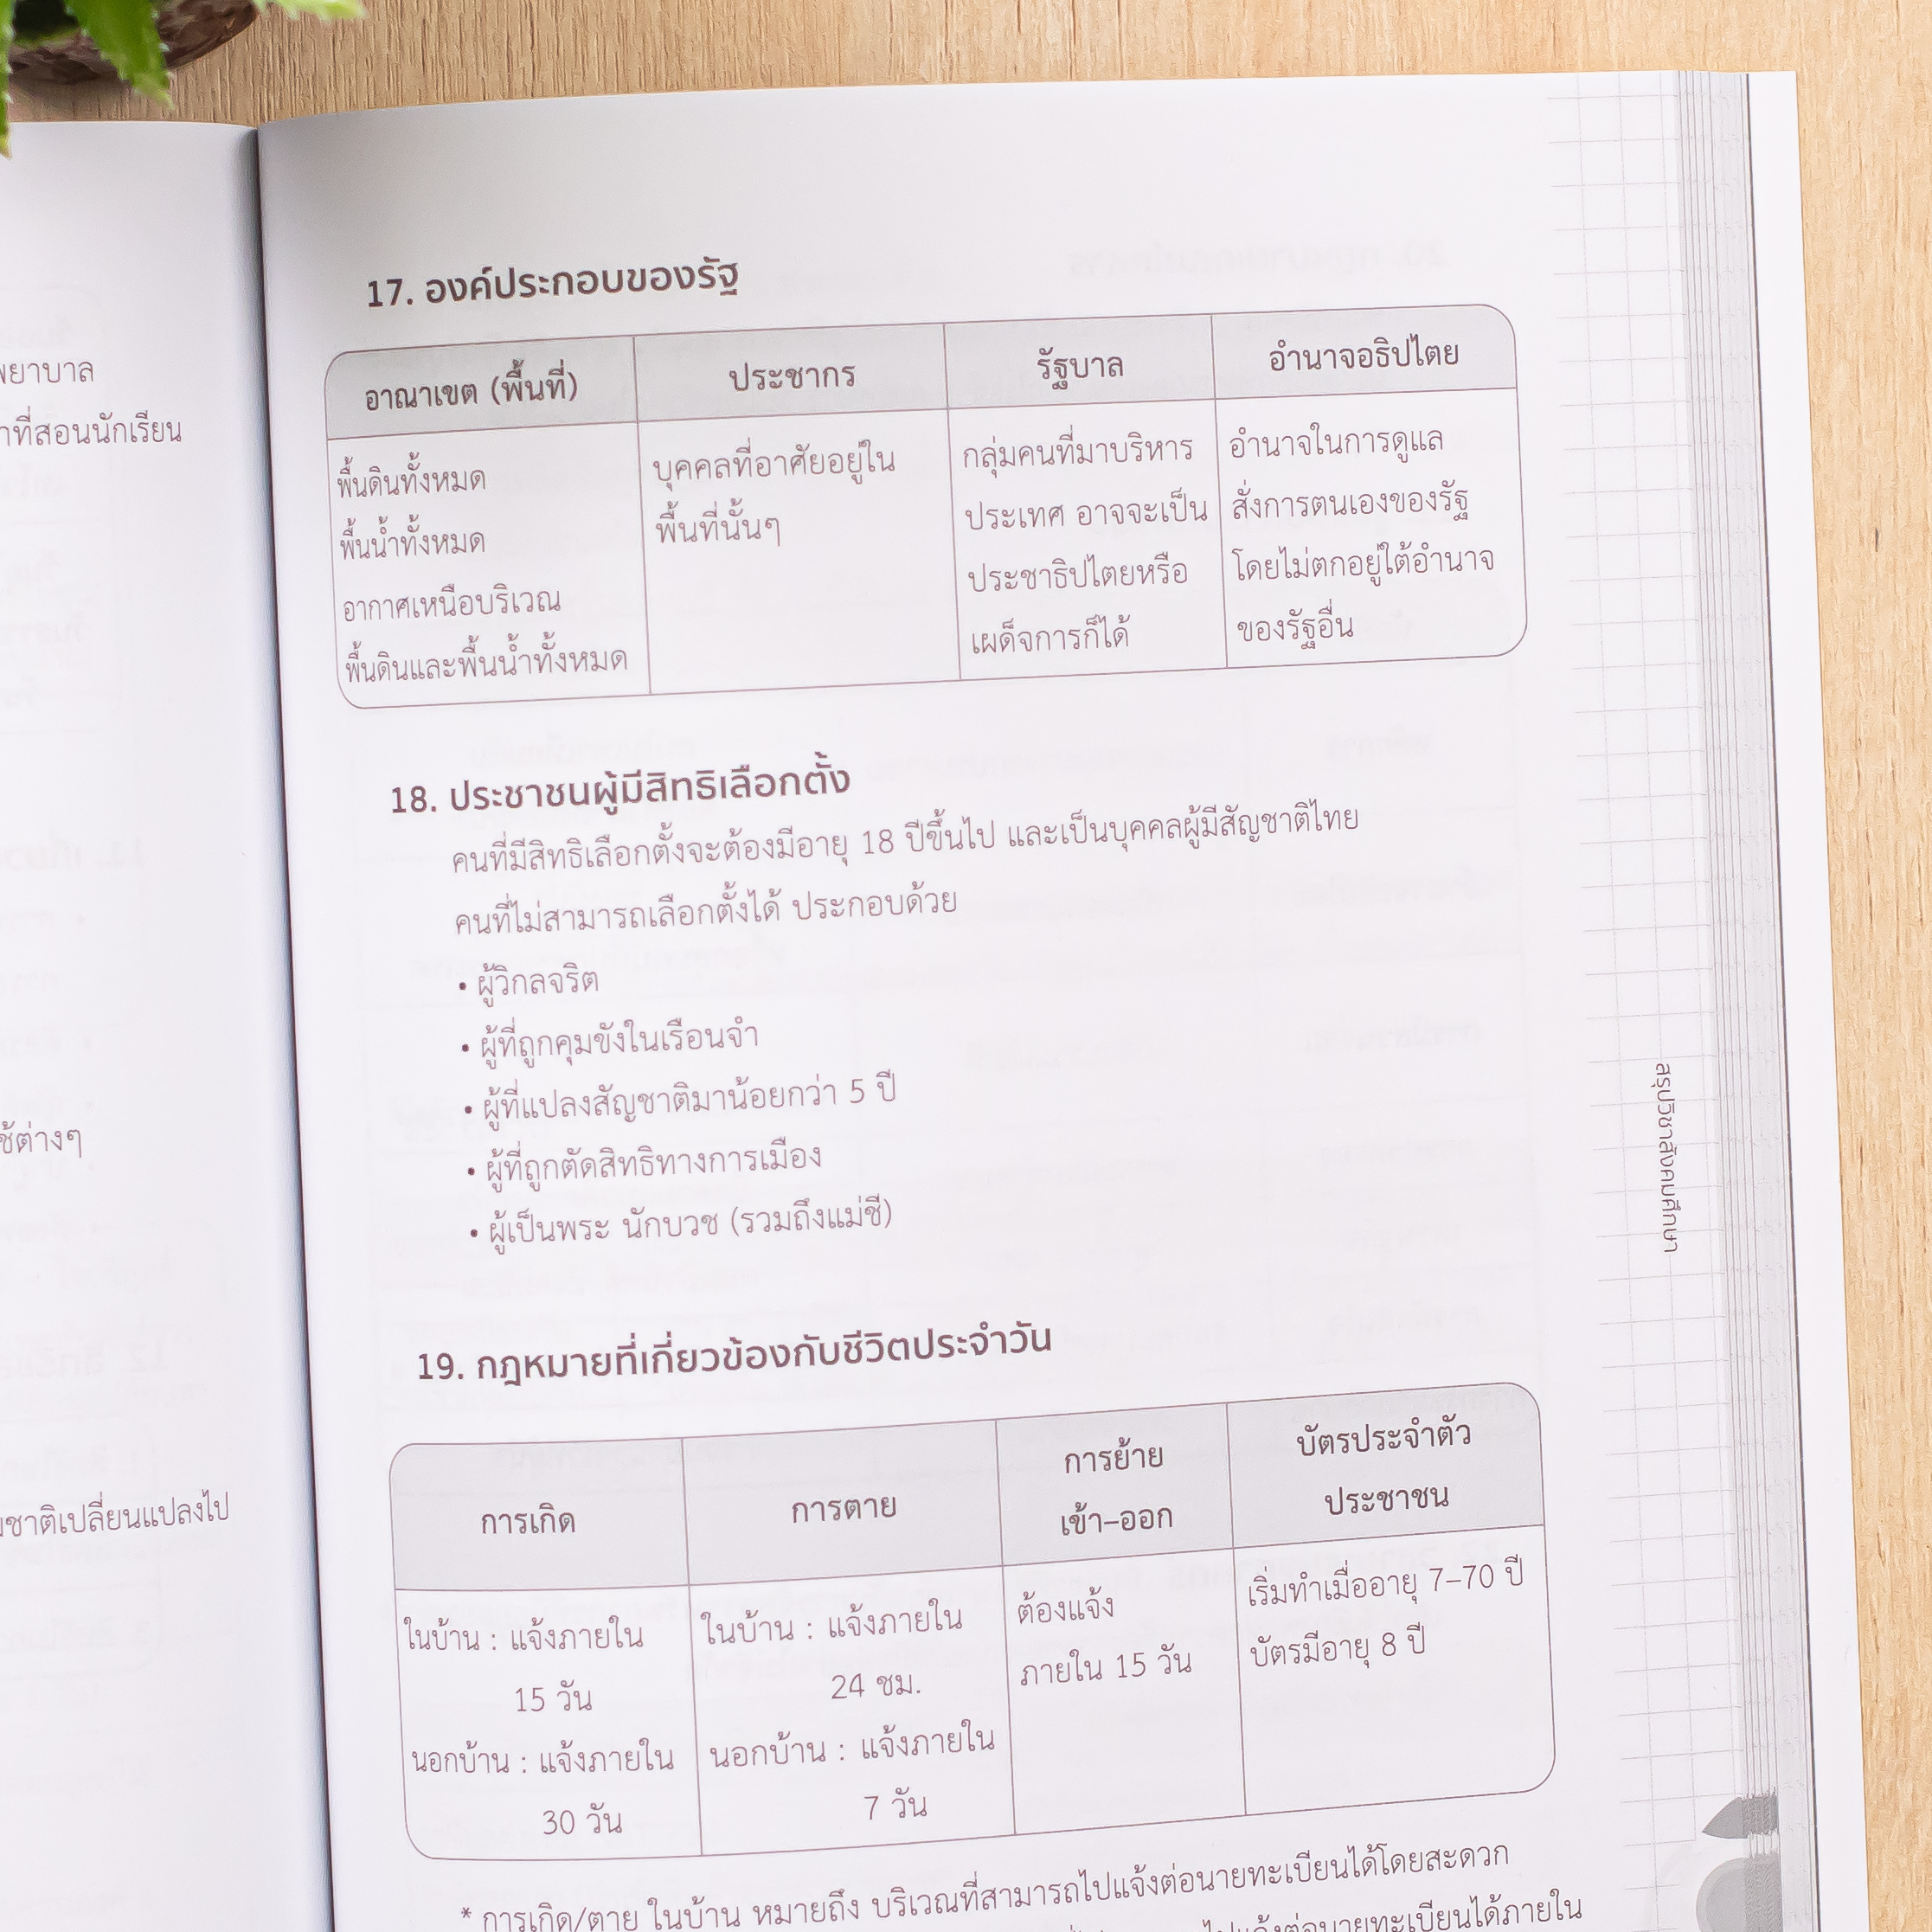 พยาบาล
ที่สอนนักเรียน
ต่างๆ
ชาติเปลี่ยนแปลงไป
17. องค์ประกอบของรัฐ
อาณาเขต (พื้นที่)
พื้นดินทั้งหมด
พื้นน้ำทั้งหมด
อากาศเหนือบริเวณ
พื้นดินและพื้นน้ำทั้งหมด
ประชากร
บุคคลที่อาศัยอยู่ใน
พื้นที่นั้นๆ
รัฐบาล
กลุ่มคนที่มาบริหาร
ประเทศ อาจจะเป็น
ประชาธิปไตยหรือ
เผด็จการก็ได้
อำนาจอธิปไตย
อำนาจในการดูแล
สั่งการตนเองของรัฐ
โดยไม่ตกอยู่ใต้อำนาจ
ของรัฐอื่น
18. ประชาชนผู้มีสิทธิเลือกตั้ง
คนที่มีสิทธิเลือกตั้งจะต้องมีอายุ 18 ปีขึ้นไป และเป็นบุคคลผู้มีสัญชาติไทย
คนที่ไม่สามารถเลือกตั้งได้ ประกอบด้วย
• ผู้วิกลจริต
• ผู้ที่ถูกคุมขังในเรือนจำ
• ผู้ที่แปลงสัญชาติมาน้อยกว่า 5 ปี
• ผู้ที่ถูกตัดสิทธิทางการเมือง
• ผู้เป็นพระ นักบวช (รวมถึงแม่ชี)
19. กฎหมายที่เกี่ยวข้องกับชีวิตประจำวัน
การเกิด
ในบ้าน : แจ้งภายใน
15 วัน
นอกบ้าน : แจ้งภายใน
30 วัน
การตาย
ในบ้าน : แจ้งภายใน
24 ชม.
นอกบ้าน : แจ้งภายใน
7 วัน
การย้าย
เข้า–ออก
ต้องแจ้ง
ภายใน 15 วัน
บัตรประจำตัว
ประชาชน
เริ่มทำเมื่ออายุ 7–70 ปี
บัตรมีอายุ 8 ปี
* การเกิด/ตาย ในบ้าน หมายถึง บริเวณที่สามารถไปแจ้งต่อนายทะเบียนได้โดยสะดวก
ไปแจ้งต่อนายทะเบียนได้ภายใน
สรุปวิชาสังคมศึกษา